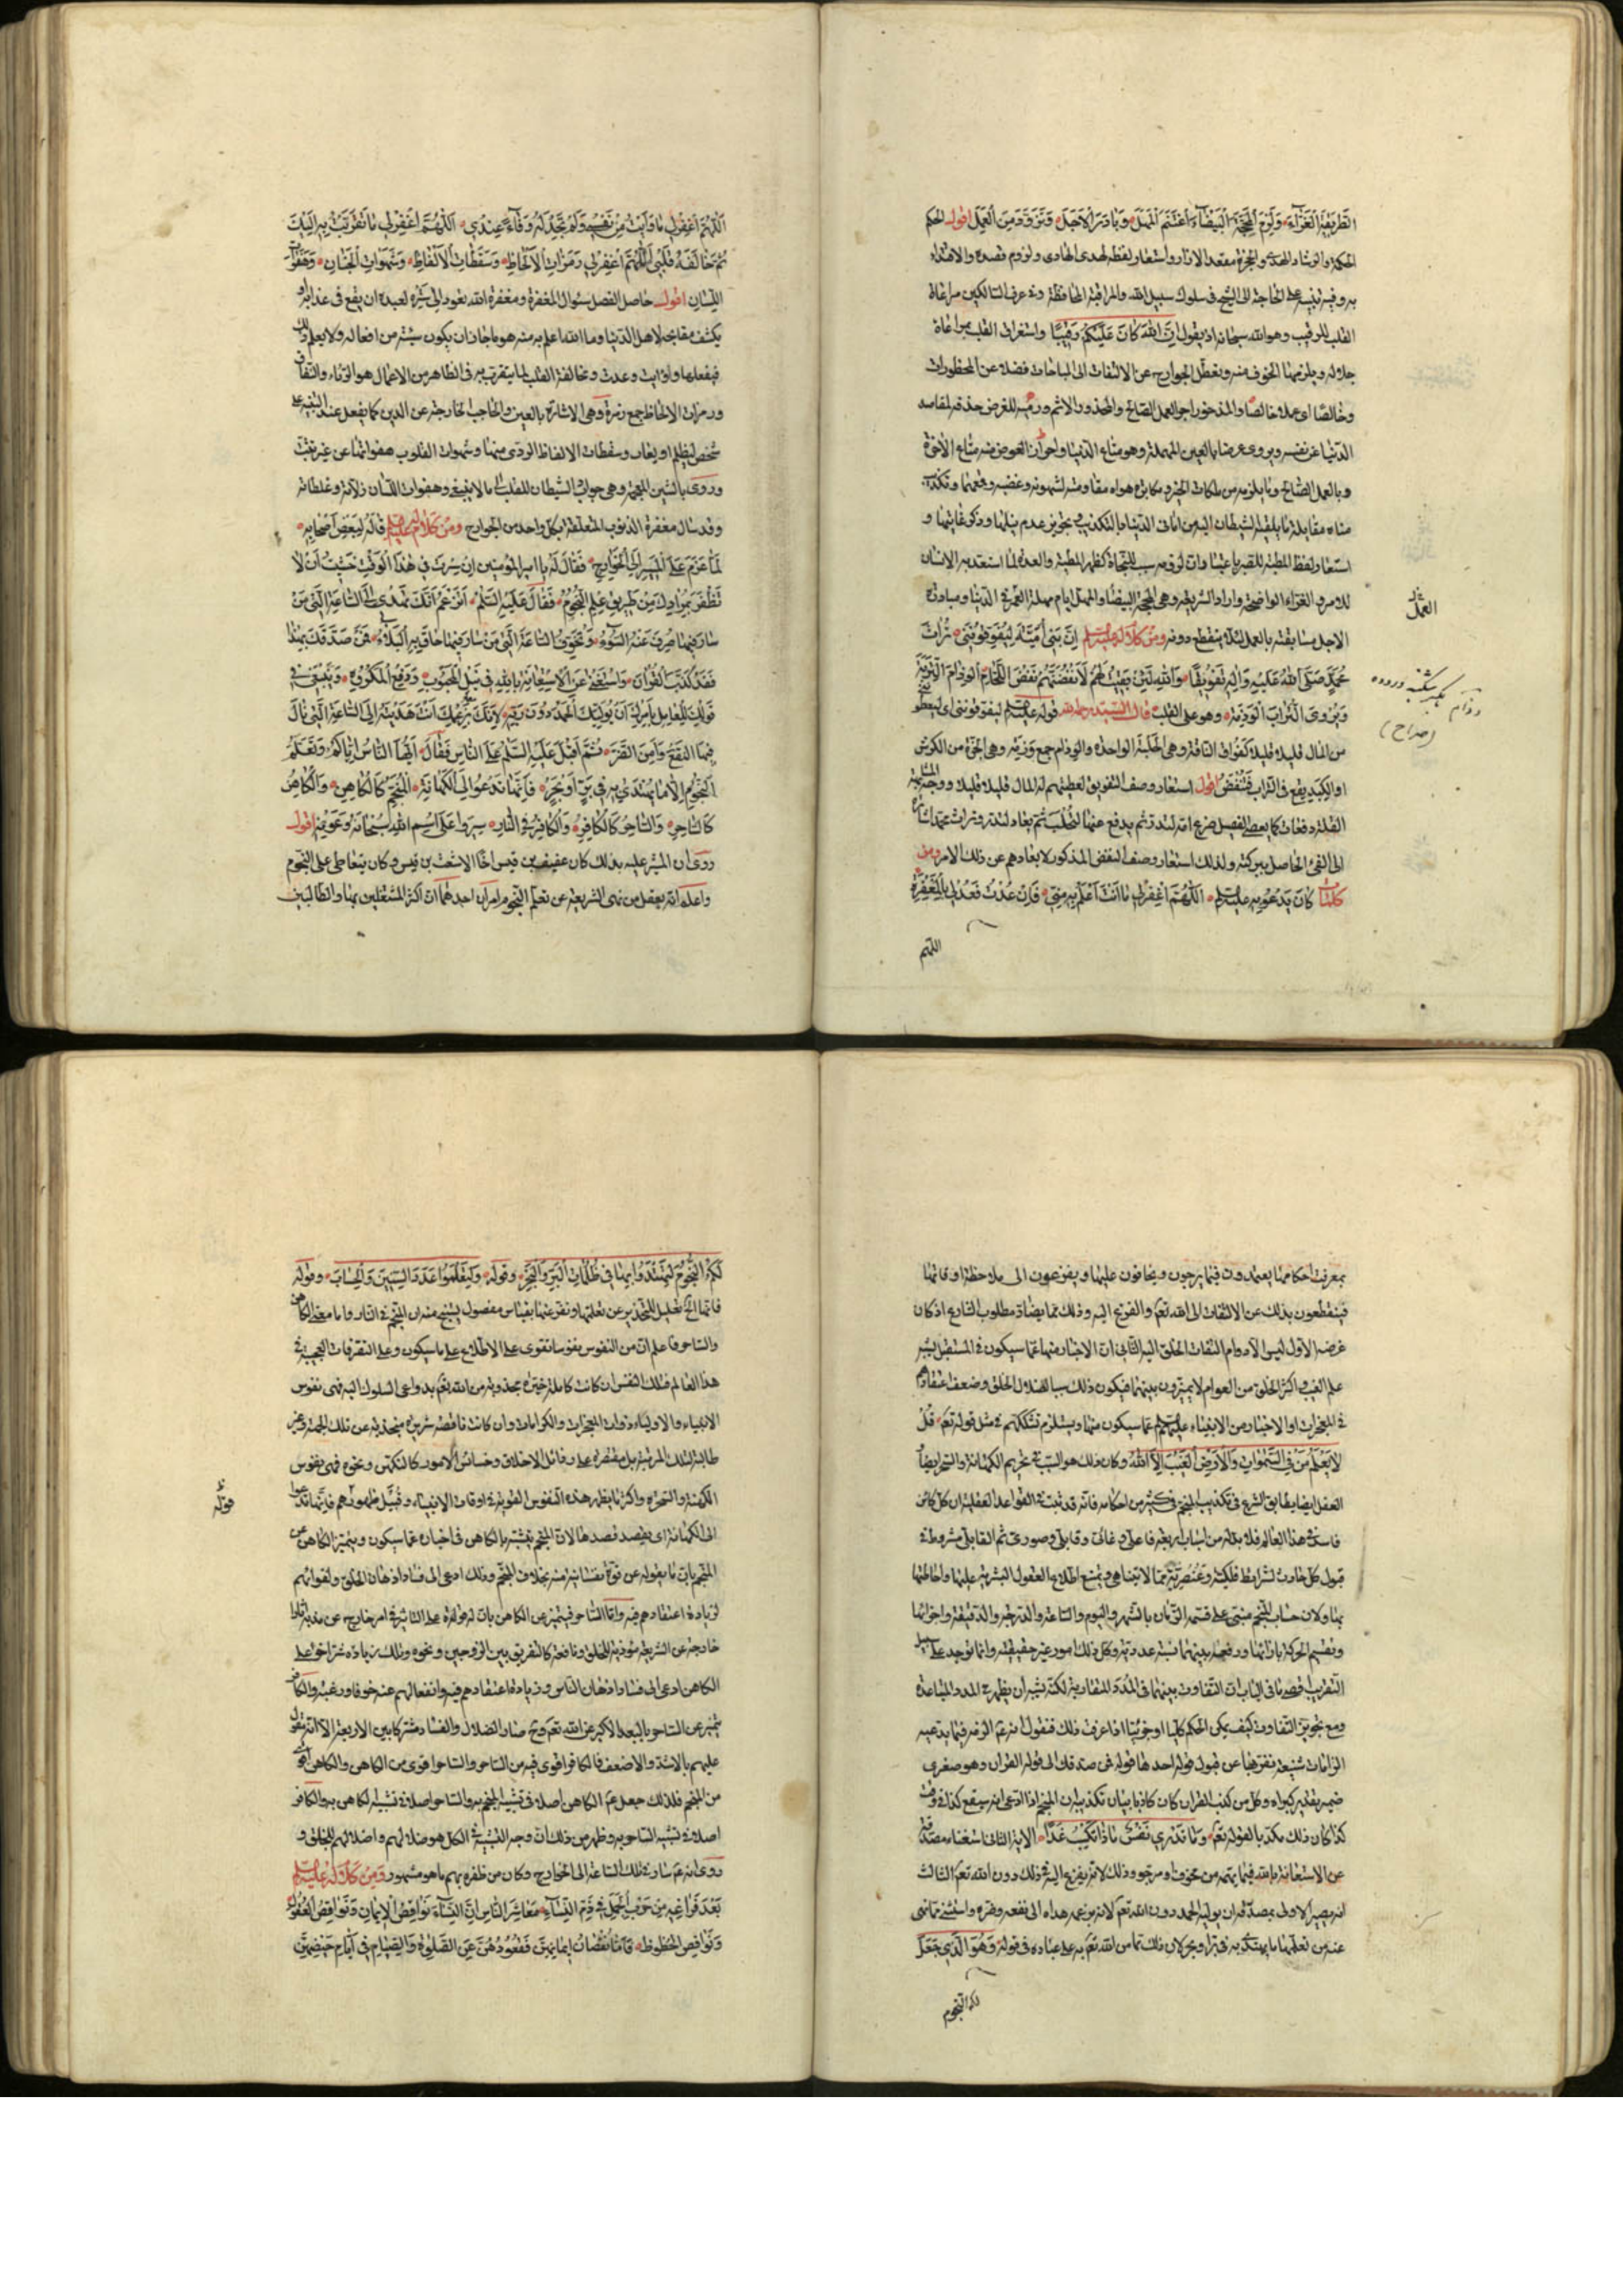 الطَّرِيقَةَ الْغَرَّاءَ وَلَزِمَ الْمَحَجَّةَ الْبَيْضَاءَ اغْتَنَمَ الْمَهَلَ وَبَادَرَ الْأَجَلَ وَتَزَوَّدَ مِنَ الْعَمَلِ اقول الحكم
الحكمة والرشاد الهدى والحجزة معقد الازار واستعار لفظه لهدى الهادى ولزوم قصده والاقتداء
به وفيه تنبيه على الحاجة الى الشيخ فى سلوك سبيل الله والمراقبة المحافظة وفى عرف السالكين مراعاة
القلب للرقيب وهو الله سبحانه اذ يقول اِنَّ اللهَ كَانَ عَلَيْكُمْ رَقِيبًا واستغراق القلب بمراعاة
جلاله ويلزمها الخوف منه وتعطل الجوارح عن الالتفات الى المباحات فضلا عن المحظورات
وخالصا اى عملا خالصا والمذخور اجر العمل الصالح والمحذور الاثم ورميه للغرض حذفه لمقاصد
الدنيا عن نفسه ويروى عرضا بالعين المهملة وهو متاع الدنيا واحراز العوض منه متاع الآخرة
وبالعمل الصالح وما يلزمه من ملكات الخير ومكابرة هواه مقاومته لشهوته وغضبه وقمعها وتكذيب
مناه مقابلة ما يلقيه الشيطان اليه من امانى الدنيا بالتكذيب فى تجويز عدم نيلها وذكر غايتها و
استعار لفظ المطية للصبر باعتبار ان لزومه سبب للنجاة كظهر المطية والعدة لما استعد به الانسان
للامر والغراء الواضحة واراد الشريعة وهى المحجة البيضاء والمهل ايام مهلة العمر فى الدنيا ومبادرة
الاجل مسابقته بالعمل لئلا ينقطع دونه ومن كلام له عليه السلم اِنَّ بَنِي أُمَيَّةَ لَيُفَوِّقُونَنِي تُرَاثَ
مُحَمَّدٍ صَلَّى اللهُ عَلَيْهِ وَآلِهِ تَفْوِيقًا وَاللهِ لَئِنْ بَقِيتُ لَهُمْ لَأَنْفُضَنَّهُمْ نَفْضَ اللَّحَّامِ الْوِذَامَ التَّرِبَةَ
وَيُرْوَى التُّرَابَ الْوَذِمَةَ وهو على القلب قال السيد رحمه الله قوله عليه السلم ليفوقوننى اى يعطوننى
من المال قليلا قليلا كفواق الناقة وهى الحلبة الواحدة والوذام جمع وذمة وهى الحزة من الكرش
او الكبد يقع فى التراب فَتُنْفَضُ اقول استعار وصف التفويق لعطيتهم له المال قليلا قليلا ووجه المشابهة
القلة دفعات كما يعطى الفصيل ضرع امه لتدر ثم يدفع عنها لتحلب ثم يعاد لتدر وتراث محمد اشارة
الى الفئ الحاصل ببركته ولذلك استعار وصف النفض المذكور لابعادهم عن ذلك الامر ومن
كلمات كَانَ يَدْعُو بِهِ عليه السلم اَللّهُمَّ اغْفِرْ لِي مَا أَنْتَ أَعْلَمُ بِهِ مِنِّي فَإِنْ عُدْتُ فَعُدْ لِي بِالْمَغْفِرَةِ
اللهم
العمل
(صراح)
اَللّهُمَّ اغْفِرْ لِي مَا وَأَيْتُ مِنْ نَفْسِي وَلَمْ تَجِدْ لَهُ وَفَاءً عِنْدِي اَللّهُمَّ اغْفِرْ لِي مَا تَقَرَّبْتُ بِهِ إِلَيْكَ
ثُمَّ خَالَفَهُ قَلْبِي اَللّهُمَّ اغْفِرْ لِي رَمَزَاتِ الْأَلْحَاظِ وَسَقَطَاتِ الْأَلْفَاظِ وَشَهَوَاتِ الْجَنَانِ وَهَفَوَاتِ
اللِّسَانِ اقول حاصل الفصل سئوال المغفرة ومغفرة الله تعود الى ستره لعبده ان يقع فى عذابه او
يكشف مقابحه لاهل الدنيا وما الله اعلم به منه هو ما جاز ان يكون سيئة من افعاله ولا يعلم ذلك
فيفعلها ووايت وعدت ومخالفة القلب لما يتقرب به فى الظاهر من الاعمال هو الرئاء والنفاق
ورمزات الالحاظ جمع رمزة وهى الاشارة بالعين والحاجب الخارجة عن الدين كما يفعل عند التنبيه على
شخص ليظلم او يعاب وسقطات الالفاظ الردى منها وشهوات القلوب هفواتها عن غير تثبت
وروى بالسين المهملة وهى جواذب الشيطان للقلب الى ما لا ينبغى وهفوات اللسان زلاته وغلطاته
وقد سأل مغفرة الذنوب المتعلقة بكل واحد من الجوارح ومن كلام له عليه السلم قَالَهُ لِبَعْضِ أَصْحَابِهِ
لَمَّا عَزَمَ عَلَى الْمَسِيرِ إِلَى الْخَوَارِجِ فَقَالَ لَهُ يا امير المؤمنين اِنْ سِرْتَ فِي هٰذَا الْوَقْتِ خَشِيتُ أَنْ لَا
تَظْفَرَ بِمُرَادِكَ مِنْ طَرِيقِ عِلْمِ النُّجُومِ فَقَالَ عَلَيْهِ السَّلَامُ أَتَزْعُمُ أَنَّكَ تَهْدِي إِلَى السَّاعَةِ الَّتِي مَنْ
سَارَ فِيهَا صُرِفَ عَنْهُ السُّوءُ وَتُخَوِّفُ السَّاعَةَ الَّتِي مَنْ سَارَ فِيهَا حَاقَ بِهِ الْبَلَاءُ فَمَنْ صَدَّقَكَ بِهٰذَا
فَقَدْ كَذَّبَ الْقُرْآنَ وَاسْتَغْنَى عَنِ الْاِسْتِعَانَةِ بِاللهِ فِي نَيْلِ الْمَحْبُوبِ وَدَفْعِ الْمَكْرُوهِ وَيَنْبَغِي فِي
قَوْلِكَ لِلْعَامِلِ بِأَمْرِكَ أَنْ يُولِيَكَ الْحَمْدَ دُونَ رَبِّهِ لِأَنَّكَ بِزَعْمِكَ أَنْتَ هَدَيْتَهُ إِلَى السَّاعَةِ الَّتِي نَالَ
فِيهَا النَّفْعَ وَأَمِنَ الضَّرَّ ثُمَّ أَقْبَلَ عَلَيْهِ السَّلَامُ عَلَى النَّاسِ فَقَالَ أَيُّهَا النَّاسُ إِيَّاكُمْ وَتَعَلُّمَ
النُّجُومِ إِلَّا مَا يُهْتَدَى بِهِ فِي بَرٍّ أَوْ بَحْرٍ فَإِنَّهَا تَدْعُو إِلَى الْكَهَانَةِ الْمُنَجِّمُ كَالْكَاهِنِ وَالْكَاهِنُ
كَالسَّاحِرِ وَالسَّاحِرُ كَالْكَافِرِ وَالْكَافِرُ فِي النَّارِ سِيرُوا عَلَى اسْمِ اللهِ سُبْحَانَهُ وَعَوْنِهِ اقول
روى ان المشير عليه بذلك كان عفيف بن قيس اخا الاشعث بن قيس وكان يتعاطى على النجوم
واعلم انه يعقل من نهى الشريعة عن تعلم النجوم امران احدهما ان اكثر المشتغلين بها والطالبين
بمعرفة احكامها يعتمدون فيما يرجون ويخافون عليها ويفزعون الى ملاحظة اوقاتها
فينقطعون بذلك عن الالتفات الى الله تعم والفزع اليه وذلك مما يضاد مطلوب الشارع اذ كان
غرضه الاول ليس الا دوام التفات الخلق اليه الثانى ان الاخبار منها عما سيكون فى المستقبل يشبه
علم الغيب اكثر الخلق من العوام لا يميزون بينهما فيكون ذلك سببا لضلال الخلق وضعف اعتقادهم
فى المعجزات او الاخبار من الانبياء عليهم السلم عما سيكون منها ويستلزم تشككهم فى مثل قوله تعم قُلْ
لَا يَعْلَمُ مَنْ فِي السَّمٰوَاتِ وَالْأَرْضِ الْغَيْبَ إِلَّا اللهُ وكان ذلك هو السبب فى تحريم الكهانة والسحر ايضا
العقل ايضا يطابق الشرع فى تكذيب المنجم فى كثير من احكامه فانه قد ثبت فى القواعد العقلية ان كل كائن
فاسد فى هذا العالم فلا بد له من اسباب اربعة فاعلى وغائى وقابلى وصورى ثم القابلى مشروط فى
قبول كل حادث لشرائط فلكية وعنصرية مما لا يتناهى ويمتنع اطلاع العقول البشرية عليها واحاطتها
بها ولان حساب المنجم مبنى على قسمة الزمان بالشهر واليوم والساعة والدرجة والدقيقة واجزائها
وتقسيم الحركة بازائها ورفعه بينهما نسبة عددية وكل ذلك امور غير حقيقية وانما توجد على سبيل
التقريب اقصى ما فى الباب ان التفاوت بينهما فى المدد المتقاربة لكنه يشبه ان يظهر فى المدد المتباعدة
ومع تجويز التفاوت كيف يمكن الحكم كليا او جزئيا اذا عرفت ذلك فنقول انه عم الزمه فيما يدعيه
الزامات شنيعة تنفر طبعا عن قبول قوله احدها قوله فمن صدقك الى قوله القران وهو صغرى
ضمير تقدير كبراه وكل من كذب القران كان كاذبا بيان تكذيبه ان المنجم اذا ادعى انه سيقع كذا فى وقت
كذا كان ذلك مكذبا لقوله تعم وَمَا تَدْرِي نَفْسٌ مَاذَا تَكْسِبُ غَدًا الاية الثانى استغناء مصدقه
عن الاستعانة بالله فيما يهمه من مخوف ومرجو وذلك لانه يفزع اليه فى ذلك دون الله تعم الثالث
انه يصير الاولى بمصدقه ان يوليه الحمد دون الله تعم لانه بزعمه هداه الى نفعه وضره واستثنى مما نهى
عنه من تعلمها ما يهتدى به فى بر او بحر لان ذلك مما من الله تعم به على عباده فى قوله وَهُوَ الَّذِي جَعَلَ
لكم النجوم
لَكُمُ النُّجُومَ لِتَهْتَدُوا بِهَا فِي ظُلُمَاتِ الْبَرِّ وَالْبَحْرِ وقوله وَلِتَعْلَمُوا عَدَدَ السِّنِينَ وَالْحِسَابَ وقوله
فانها الخ تعليل للتحذير عن تعلمها وتفرعنها بقياس مفصول ينتج منه ان المنجم فى النار واما معنى الكاهن
والساحر فاعلم ان من النفوس نفوسا تقوى على الاطلاع على ما سيكون وعلى التصرفات العجيبة فى
هذا العالم فتلك النفس ان كانت كاملة خيرة مجذوبة من الله تعم بدواعى السلوك اليه فهى نفوس
الانبياء والاولياء ذوات المعجزات والكرامات وان كانت ناقصة شريرة منجذبة عن تلك الجهة وغير
طالبة لتلك المرتبة بل مقتصرة على رذائل الاخلاق وخسائس الامور كالتكهن ونحوه فهى نفوس
الكهنة والسحرة واكثر ما يظهر هذه النفوس القوية فى اوقات الانبياء وقبيل ظهورهم فانها تدعوا
الى الكهانة اى يقصد قصدها لان المنجم يتشبه بالكاهن فى اخباره عما سيكون ويتميز الكاهن عن
المنجم بان ما يقوله عن قوة نفسانية منه بخلاف المنجم وذلك ادعى الى فساد اذهان الخلق واغوائهم
لزيادة اعتقادهم فيه واما الساحر فيتميز عن الكاهن بان له قوة على التاثير فى امر خارج عن بدنه اثارا
خارجة عن الشريعة مؤذية للخلق ونافعة كالتفريق بين الزوجين ونحوه وتلك زيادة شر اخر على
الكاهن ادعى الى فساد اذهان الناس وزيادة اعتقادهم فيه وانفعالهم عنه خوفا ورغبة والكافر
يتميز عن الساحر بالبعد الاكبر عن الله تعم وح صار الضلال والفساد مشتركا بين الاربعة الا انه مقول
عليهم بالاشد والاضعف فالكافر اقوى فيه من الساحر والساحر اقوى من الكاهن والكاهن اقوى
من المنجم فلذلك جعل عم الكاهن اصلا فى تشبيه المنجم به والساحر اصلا فى تشبيه الكاهن به والكافر
اصلا فى تشبيه الساحر به وظهر من ذلك ان وجه التشبيه فى الكل هو ضلالهم واضلالهم للخلق و
روى انه عم سار فى تلك الساعة الى الخوارج وكان من ظفره بهم ما هو مشهور ومن كلام له عليه السلم
بَعْدَ فَرَاغِهِ مِنْ حَرْبِ الْجَمَلِ فِي ذَمِّ النِّسَاءِ مَعَاشِرَ النَّاسِ إِنَّ النِّسَاءَ نَوَاقِصُ الْإِيمَانِ وَنَوَاقِصُ الْعُقُولِ
وَنَوَاقِصُ الْحُظُوظِ فَأَمَّا نُقْصَانُ إِيمَانِهِنَّ فَقُعُودُهُنَّ عَنِ الصَّلٰوةِ وَالصِّيَامِ فِي أَيَّامِ حَيْضِهِنَّ
قوله